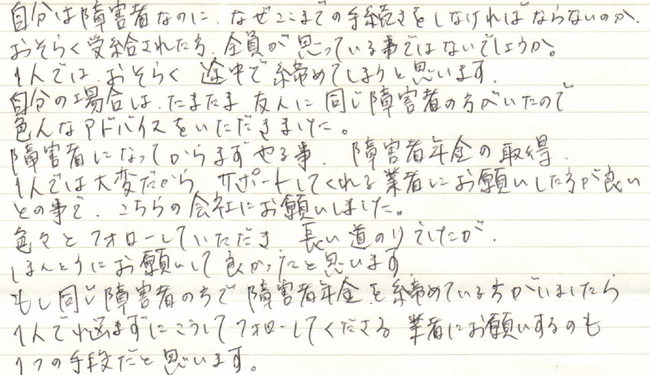 自分は障害者なのに、なぜここまでの手続きをしなければならないのか、
おそらく受給された方、全員が思っている事ではないでしょうか。
1人では、おそらく 途中で締めてしまうと思います。
自分の場合は、たまたま 友人に同じ障害者の方がいたので
色んなアドバイスをいただきました。
障害者になってからまずやる事、障害者年金の取得、
1人では大変だから、サポートしてくれる業者にお願いした方が良い
との事で、こちらの会社にお願いしました。
色々とフォローしていただき 長い道のりでしたが、
ほんとうにお願いして良かったと思います
もし同じ障害者の方で障害者年金を締めている方がいましたら
1人で悩まずにこうしてフォローしてくださる 業者にお願いするのも
1つの手段だと思います。